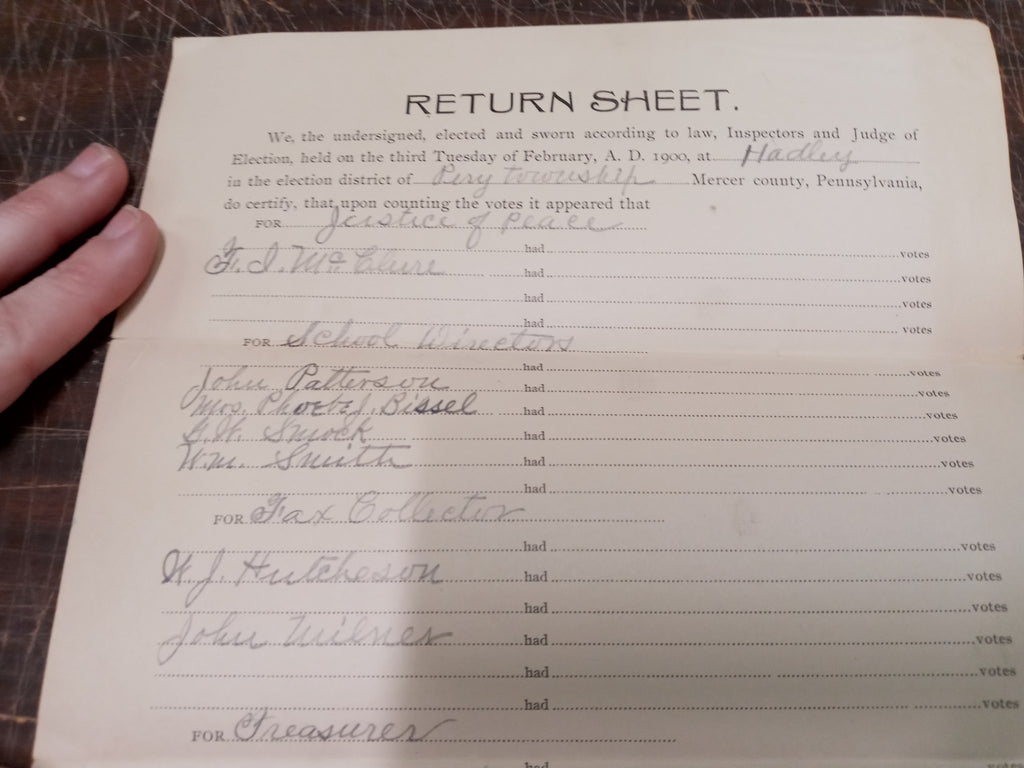 RETURN SHEET.
We, the undersigned, elected and sworn according to law, Inspectors and Judge of
Election, held on the third Tuesday of February, A. D. 1900, at Hadley
in the election district of Pery township Mercer county, Pennsylvania,
do certify, that upon counting the votes it appeared that
FOR Justice of Peace
had votes
F. I. McClure had votes
had votes
had votes
FOR School Directors
had votes
John Patterson had votes
Mrs. Phoebe J. Bissel had votes
G. W. Smock had votes
Wm. Smith had votes
had votes
FOR Tax Collector
had votes
W. J. Hutcheson had votes
had votes
John Milner had votes
had votes
had votes
FOR Treasurer
had votes